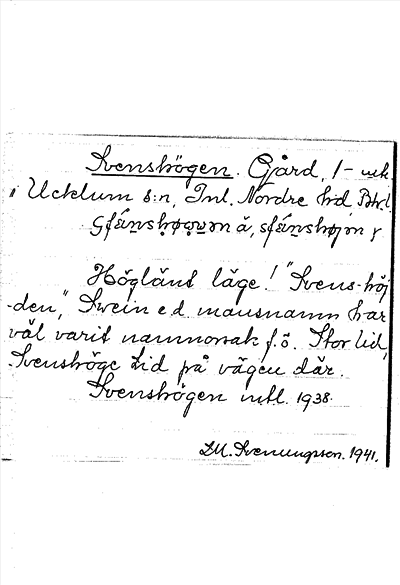 Svenshögen. Gård, 1 - mtl.
i Ucklum s:n, Inl. Nordre hd, Bhl.
Högländt läge! "Svens-höj
-den", Svein e.d. mansnamn har
väl varit namnorsak f.ö. Stor lid,
Svenshöge lid på vägen där.
Svenshögen mtl. 1938.
D.M. Svenungsson. 1941.